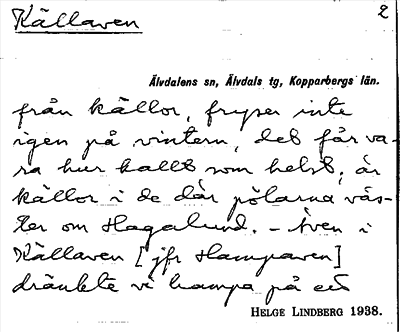 Källaven
2
Älvdalens sn, Älvdals tg, Kopparbergs län.
från källor, fryser inte
igen på vintern, det får va-
ra hur kallt som helst; är
källor i de där pölarna väs-
ter om Hagalund. - Även i
Källaven [jfr Hampaven]
dränkte vi hampa på ett
HELGE LINDBERG 1938.